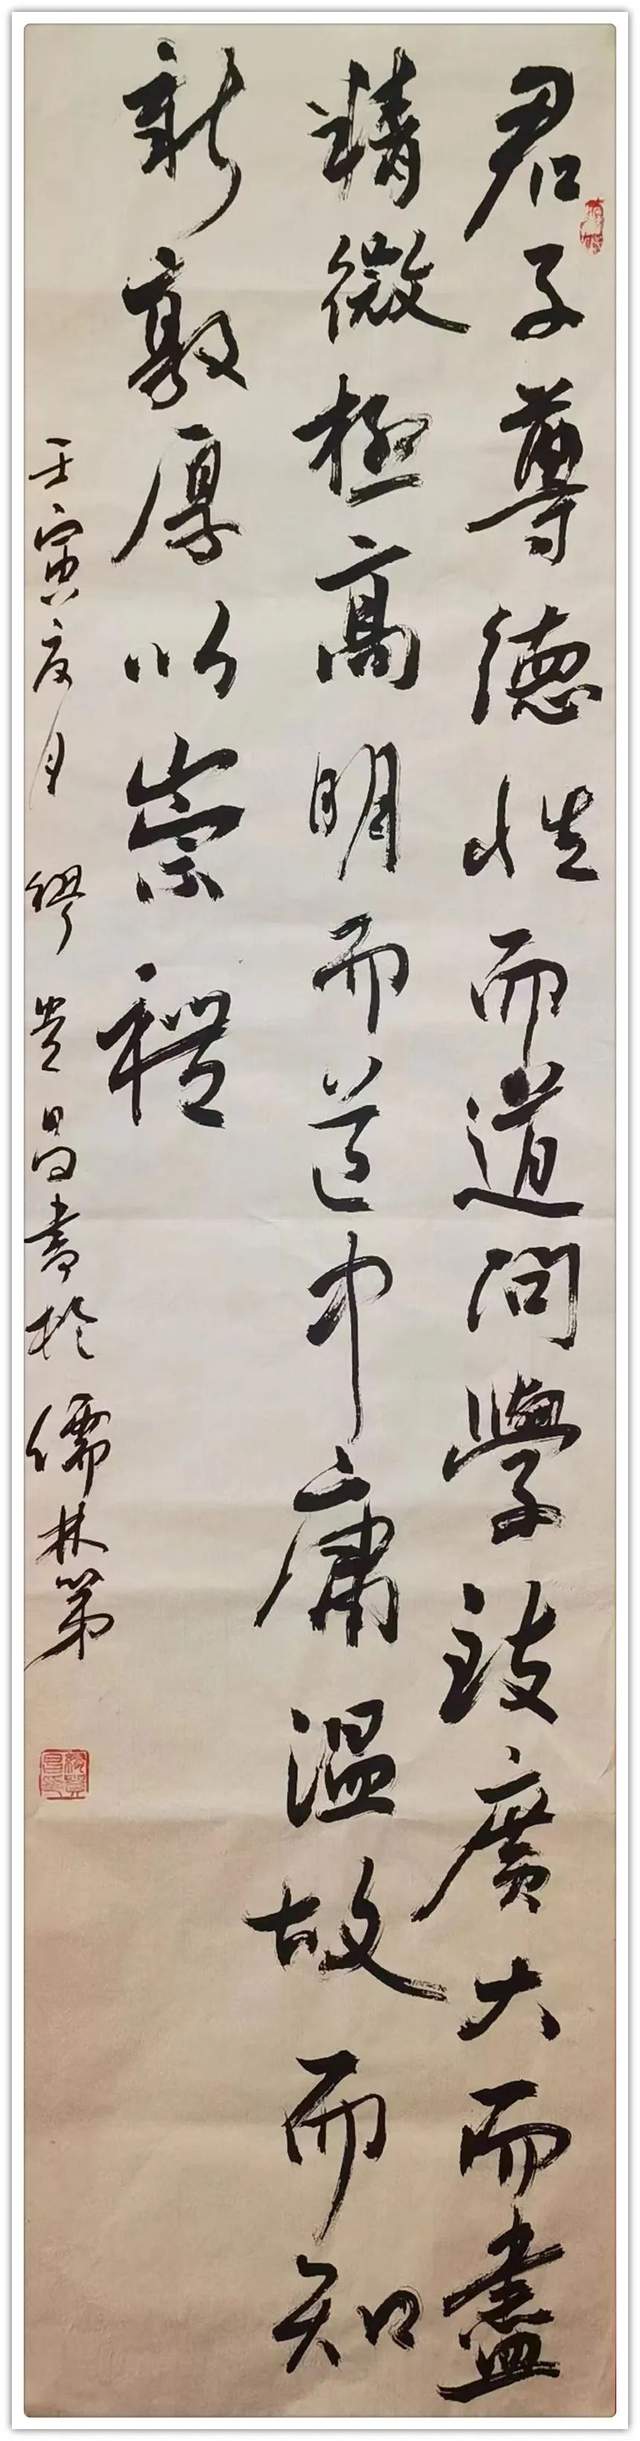 君子尊德性而道問學致廣大而盡
精微極高明而道中庸溫故而知
新敦厚以崇禮
壬寅夏月 繆貴昌書於儒林第